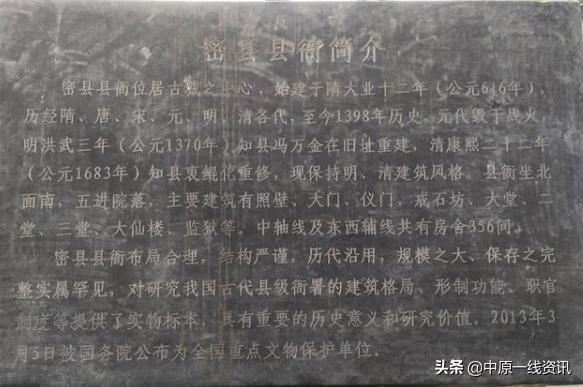 密县县衙简介
密县县衙位居古城之中心，始建于隋大业十二年（公元616年），
历经隋、唐、宋、元、明、清各代，至今1398年历史。元代毁于战火，
明洪武三年（公元1370年）知县冯万金在旧扯重建，清康熙二十二年
（公元1683年）知县衷鲲化重修，现保持明、清建筑风格。县衙坐北
面南，五进院落，主要建筑有照壁、大门、仪门、戒石坊、大堂、二
堂、三堂、大仙楼、监狱等。中轴线及东西辅线共有房舍356间。
密县县衙布局合理，结构严谨，历代沿用，规模之大、保存之完
整实属罕见，对研究我国古代县级衙署的建筑格局、形制功能、职官
制度等提供了实物标本，具有重要的历史意义和研究价值。2013年3
月5日被国务院公布为全国重点文物保护单位。
头条 @中原一线资讯